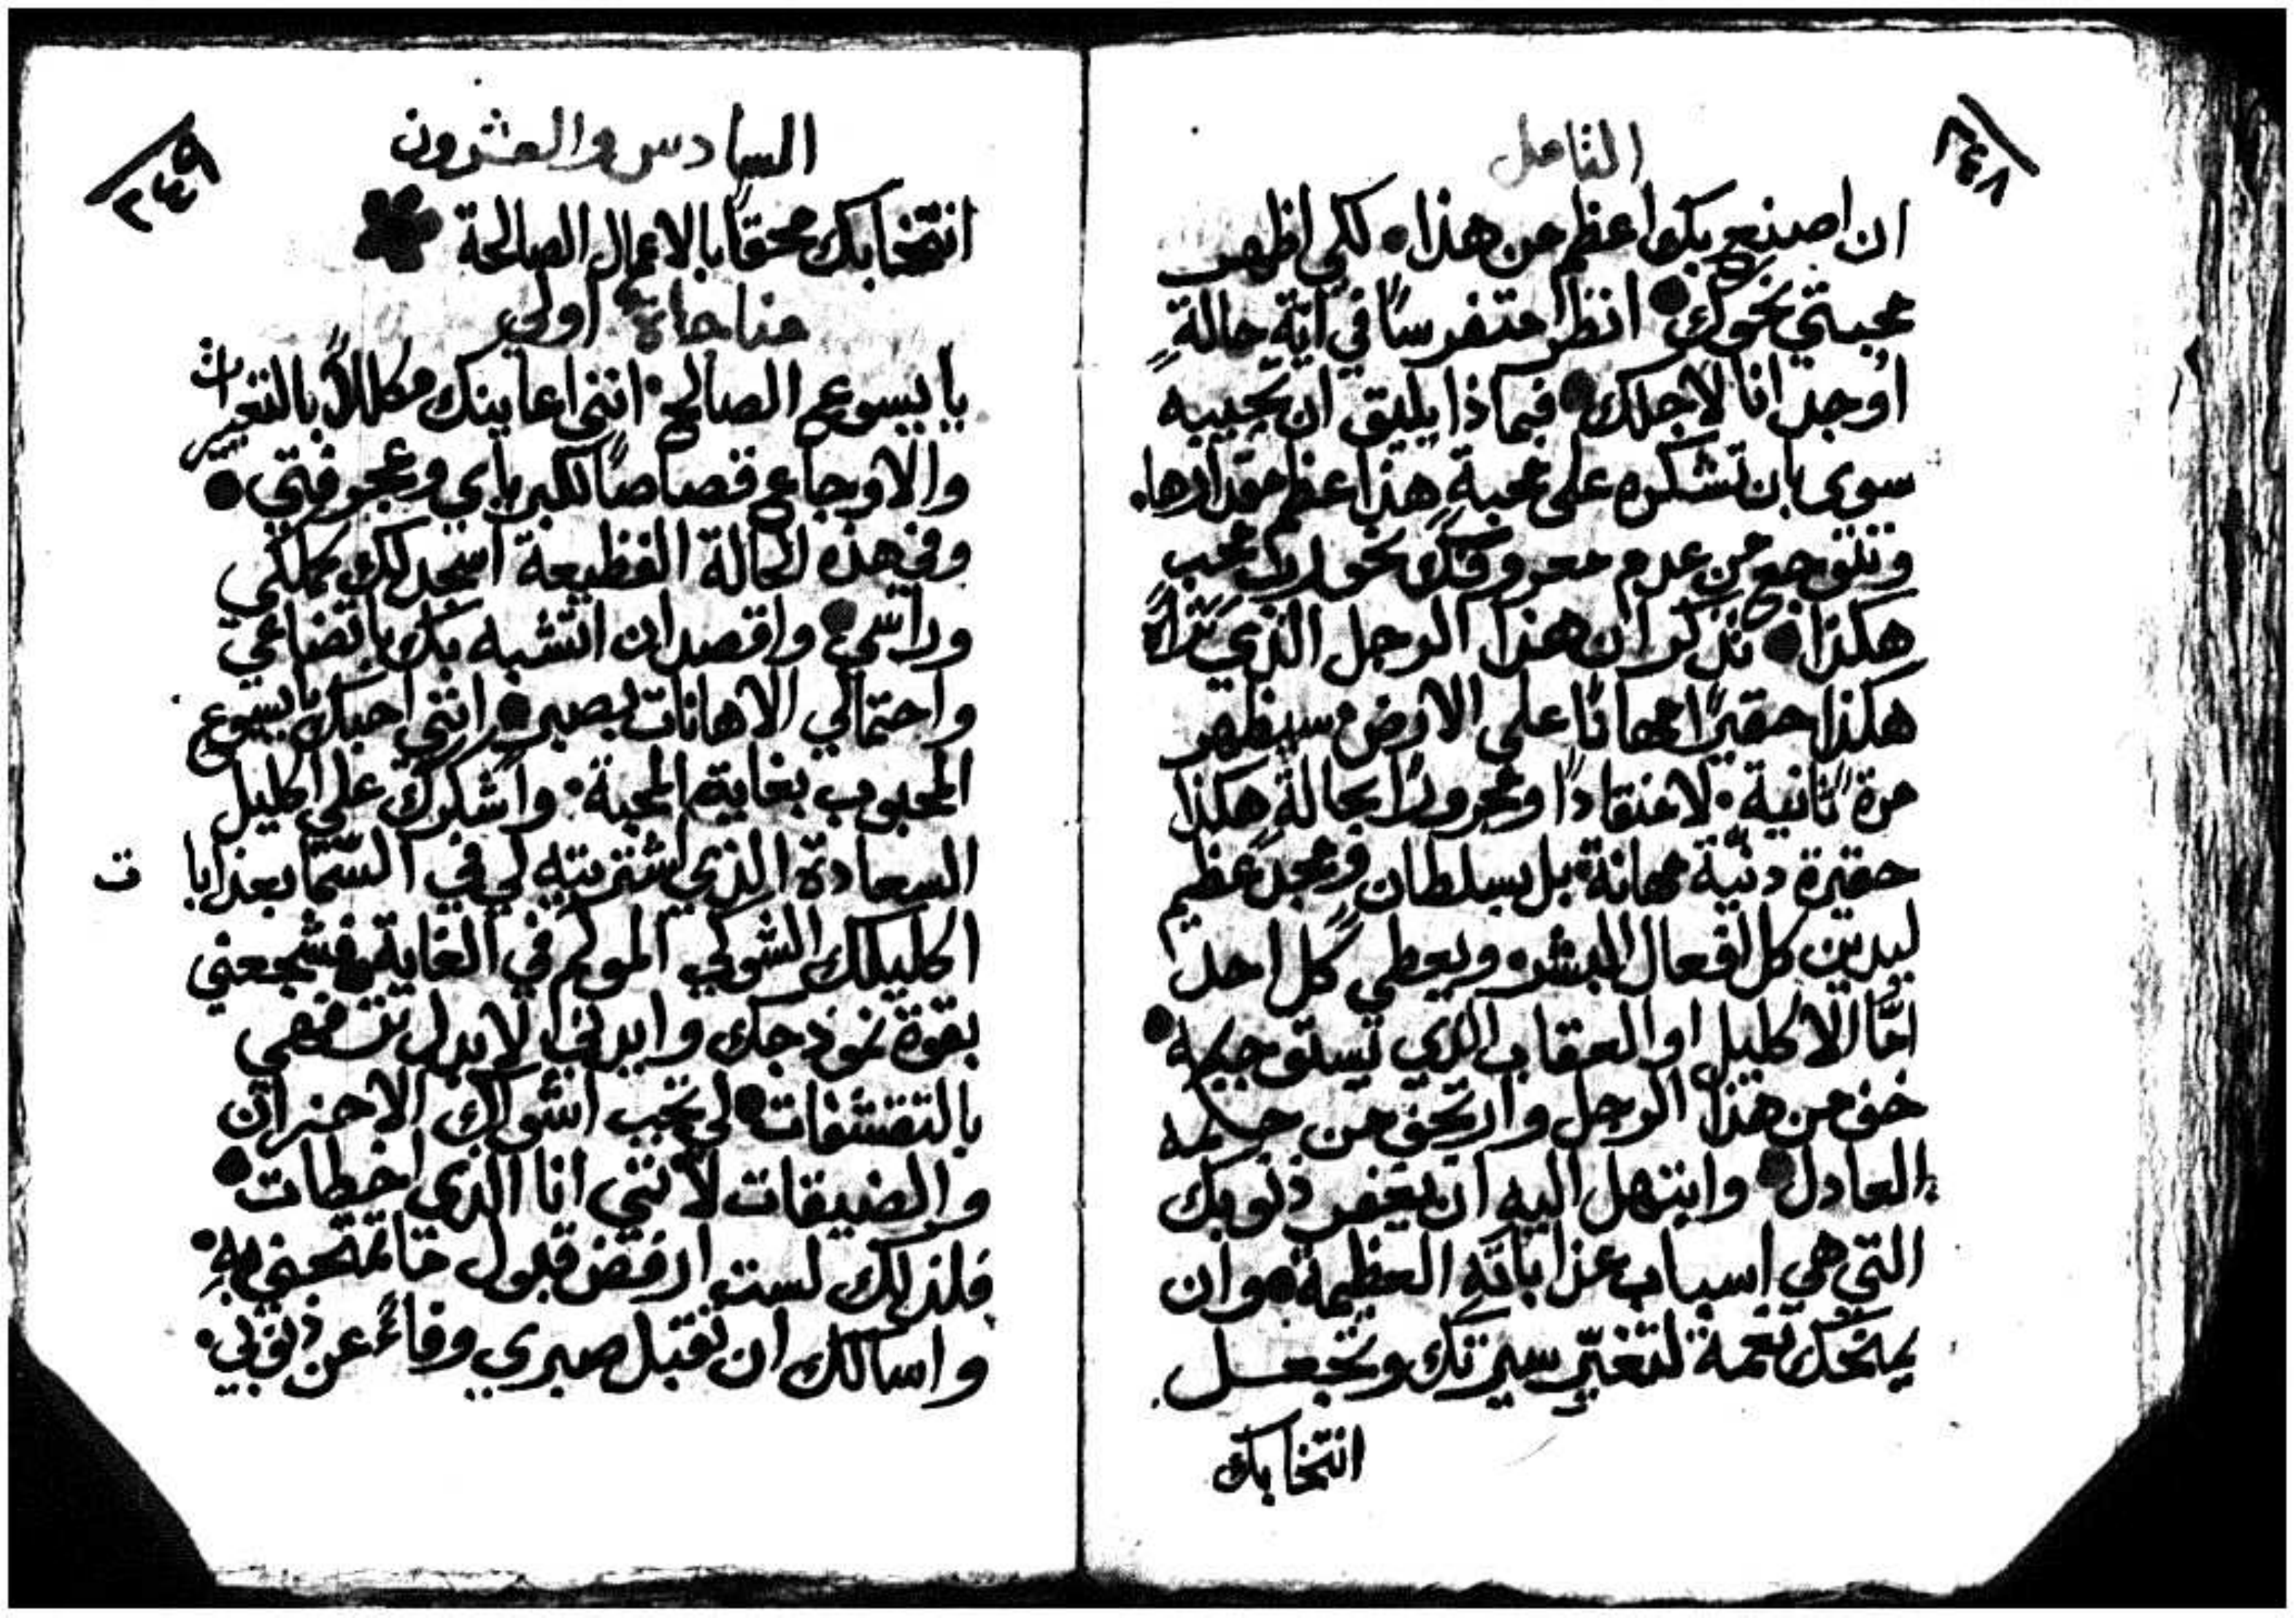 ٢٤٨
التامل
ان اصنع بكم اعظم من هذا • لكي اظهر
محبتي نحوك • انظر متفرسًا في اية حالةٍ
اوجد انا لاجلك • فبماذا يليق ان تجيبه
سوى بان تشكره على محبةٍ هذا عظم مقدارها •
وتتوجع من عدم معروفك نحو ربٍ محب
هكذا • تذكر ان هذا الرجل الذي تراهُ
هكذا حقيرًا مهانًا على الارض • سيظهر
مرة ثانية • لا منقادًا ومجرورًا بحالة هكذا
حقيرة دنيّة مهانة • بل بسلطان ومجد عظيم
ليدين كل افعال البشر • ويعطي كل احد
امّا الاكليل او العقاب الذي تستوجبه •
خف من هذا الرجل وارتجف من حكمه
العادل • وابتهل اليه ان يغفر ذنوبك
التي هي اسباب عذاباته العظيمة • وان
يمنحك نعمة لتغيّر سيرتك وتجعل
انتخابك
٢٤٩
السادس والعشرون
انتخابك محققًا بالاعمال الصالحة
مناجاة اولي
يا يسوع الصالح • انني اعاينك مكللاً بالتعييرات
والاوجاع قصاصًا لكبرياي وعجرفتي •
وفي هذه الحالة الفظيعة اسجد لك كملكي
وراسي • واقصد ان اتشبه بك باتضاعي
واحتمالي الاهانات بصبرٍ • انني احبك يا يسوع
المحبوب بغاية المحبة • واشكرك على اكليل
السعادة الذي اشتريته لي في السّما بعذابات
اكليلك الشوكي المولم في الغاية • فشجعني
بقوة نموذجك وايدني لابدل تنعمي
بالتقشفات • لي تجب اشواك الاحزان
والضيقات لانني انا الذي اخطات •
فلذلك لست ارفض قبول ما تمتحنني به •
واسالك ان تقبل صبري وفاءً عن ذنوبي •